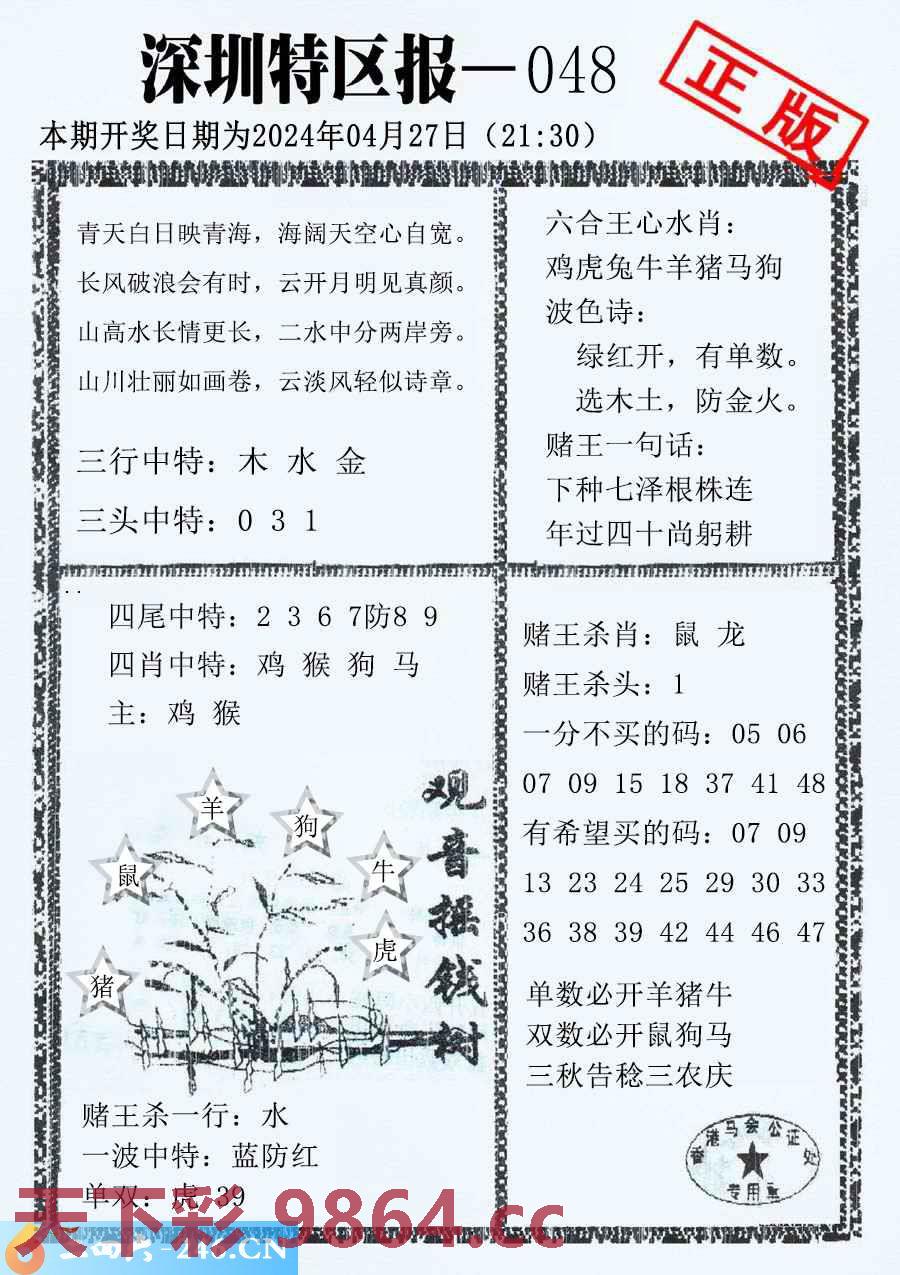 深圳特区报—048
正版
本期开奖日期为2024年04月27日（21:30）
青天白日映青海，海阔天空心自宽。
长风破浪会有时，云开月明见真颜。
山高水长情更长，二水中分两岸旁。
山川壮丽如画卷，云淡风轻似诗章。
三行中特：木 水 金
三头中特：0 3 1
六合王心水肖：
鸡虎兔牛羊猪马狗
波色诗：
绿红开，有单数。
选木土，防金火。
赌王一句话：
下种七泽根株连
年过四十尚躬耕
四尾中特：2 3 6 7防8 9
四肖中特：鸡 猴 狗 马
主：鸡 猴
羊
狗
鼠
牛
虎
猪
观音摇钱树
赌王杀一行：水
一波中特：蓝防红
单双：虎 39
赌王杀肖：鼠 龙
赌王杀头：1
一分不买的码：05 06
07 09 15 18 37 41 48
有希望买的码：07 09
13 23 24 25 29 30 33
36 38 39 42 44 46 47
单数必开羊猪牛
双数必开鼠狗马
三秋告稔三农庆
香港马会公证处
专用章
天下彩 9864.cc
-246.CN